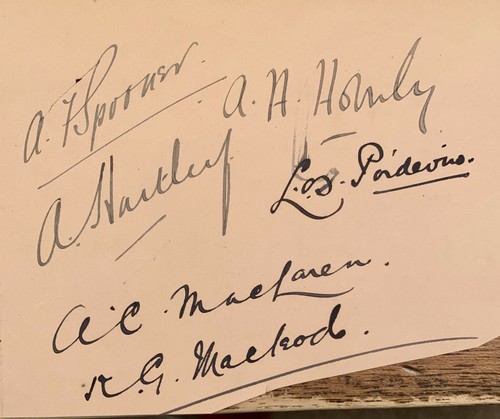 A. F Spooner.
A. H. Hornby
A. Hartley
L. O. S. Poidevin.
A. C. MacLaren.
K. G. Macleod.